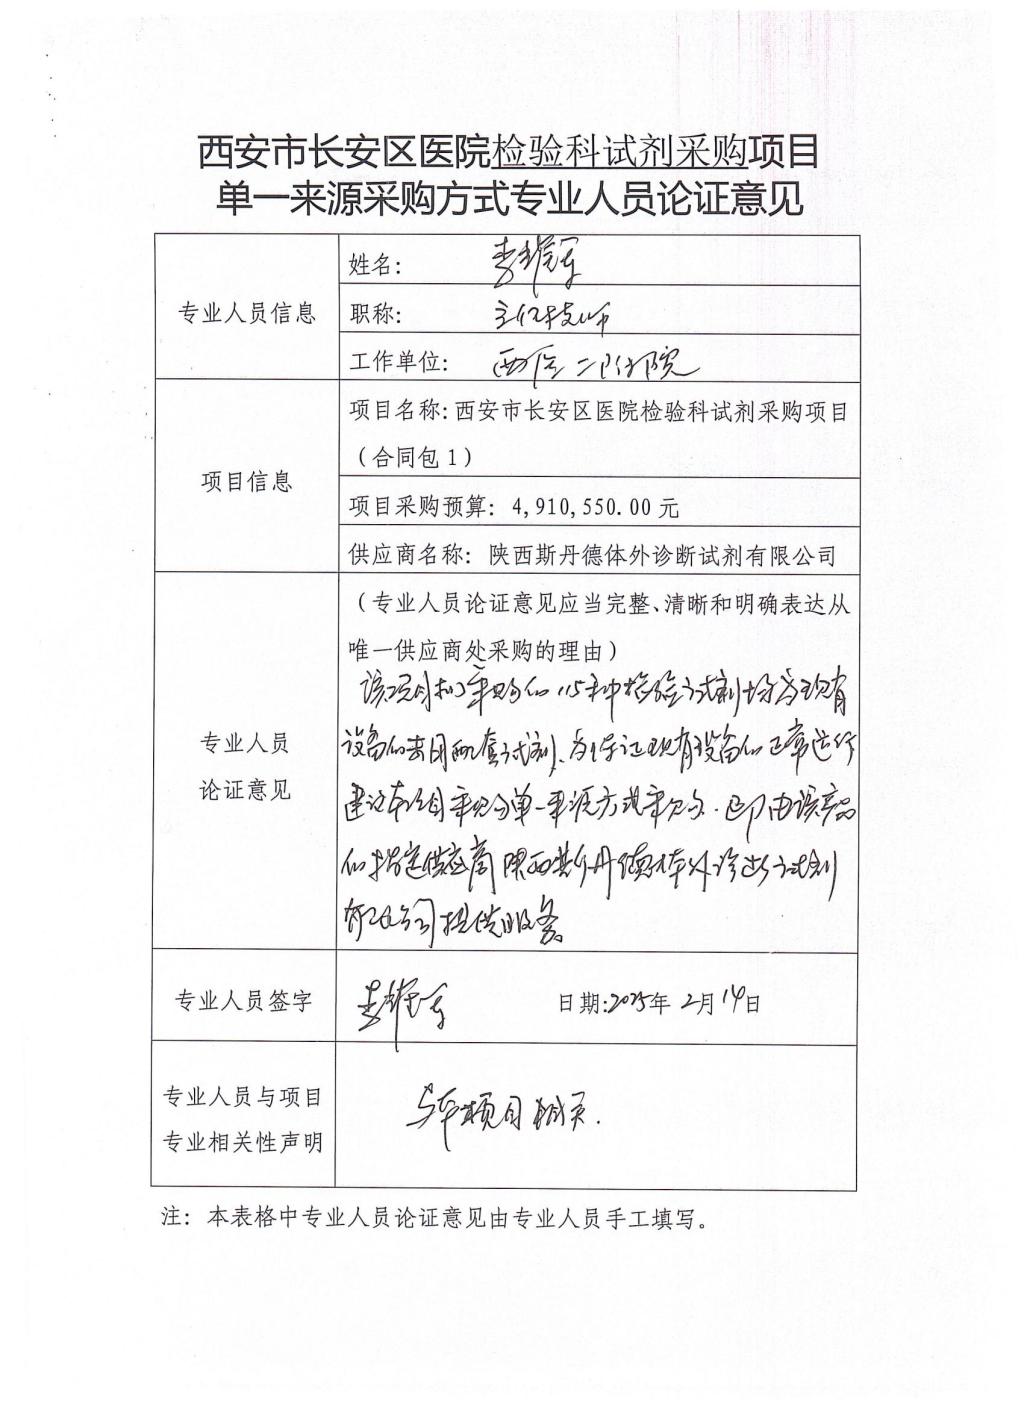 西安市长安区医院检验科试剂采购项目
单一来源采购方式专业人员论证意见
专业人员信息
姓名：
职称： 主任技师
工作单位： 西医二附院
项目信息
项目名称：西安市长安区医院检验科试剂采购项目
（合同包1）
项目采购预算： 4,910,550.00 元
供应商名称： 陕西斯丹德体外诊断试剂有限公司
专业人员
论证意见
（专业人员论证意见应当完整、清晰和明确表达从
唯一供应商处采购的理由）
该项目拟采购的115种检验试剂均为现有
设备的专用配套试剂、为保证现有设备的正常运行
建议本项目采购单一来源方式采购，即由该产品
的指定供应商陕西斯丹德体外诊断试剂
有限公司提供服务。
专业人员签字
日期:2025年 2月14日
专业人员与项目
专业相关性声明
与本项目相关.
注： 本表格中专业人员论证意见由专业人员手工填写。